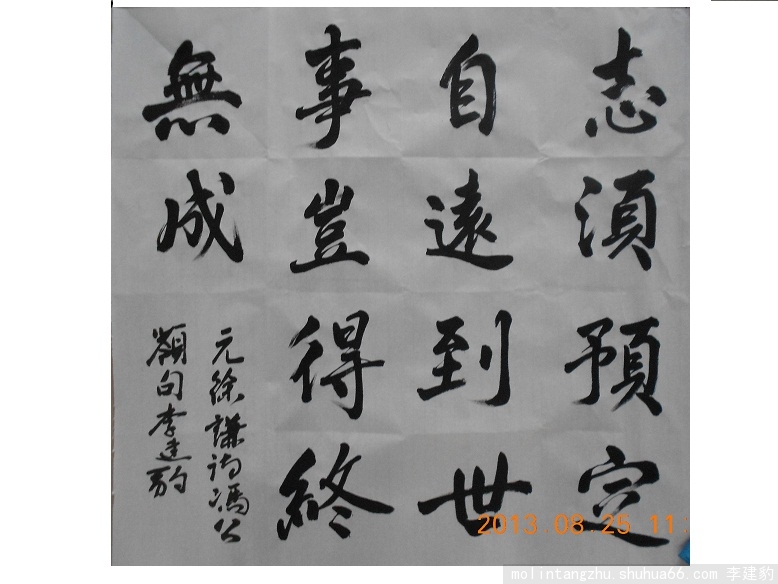 志湏預定
自遠到世
事豈得終
無成
元徐謙詩馮公
嶺句李建豹
2013.08.25 11:
molintangzhu.shuhua66.com 李建豹